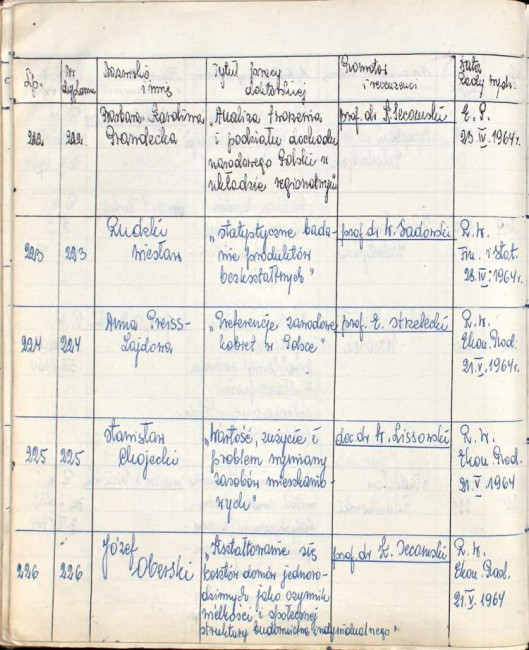 Lp. Nr dyplomu Nazwisko i imię Tytuł pracy doktorskiej Promotor i recenzenci Data Rady Wydz.
222 222 Barbara Karolina Prandecka „Analiza tworzenia
i podziału dochodu
narodowego Polski w
układzie regionalnym prof. dr K. Secomski E. P.
23.IV.1964r.
223 223 Rudzki
Wiesław „Statystyczne bada-
nie produktów
bezkształtnych" prof. dr W. Sadowski R. W.
Fin. i Stat.
28.IV.1964r.
224 224 Anna Preiss-
Zajdowa „Preferencje zawodowe
kobiet w Polsce" prof. E. Strzelecki R. W.
Ekon. Prod.
21.V.1964r.
225 225 Stanisław
Chojecki „Wartość, zużycie i
problem wymiany
zasobów mieszkanio-
wych" doc. dr W. Lissowski R. W.
Ekon. Prod.
21.V.1964
226 226 Józef
Oberski „Kształtowanie się
kosztów domów jednoro-
dzinnych jako czynnik
wielkości i społecznej
struktury budownictwa indywidualnego" prof. dr K. Secomski R. W.
Ekon. Prod.
21.V.1964